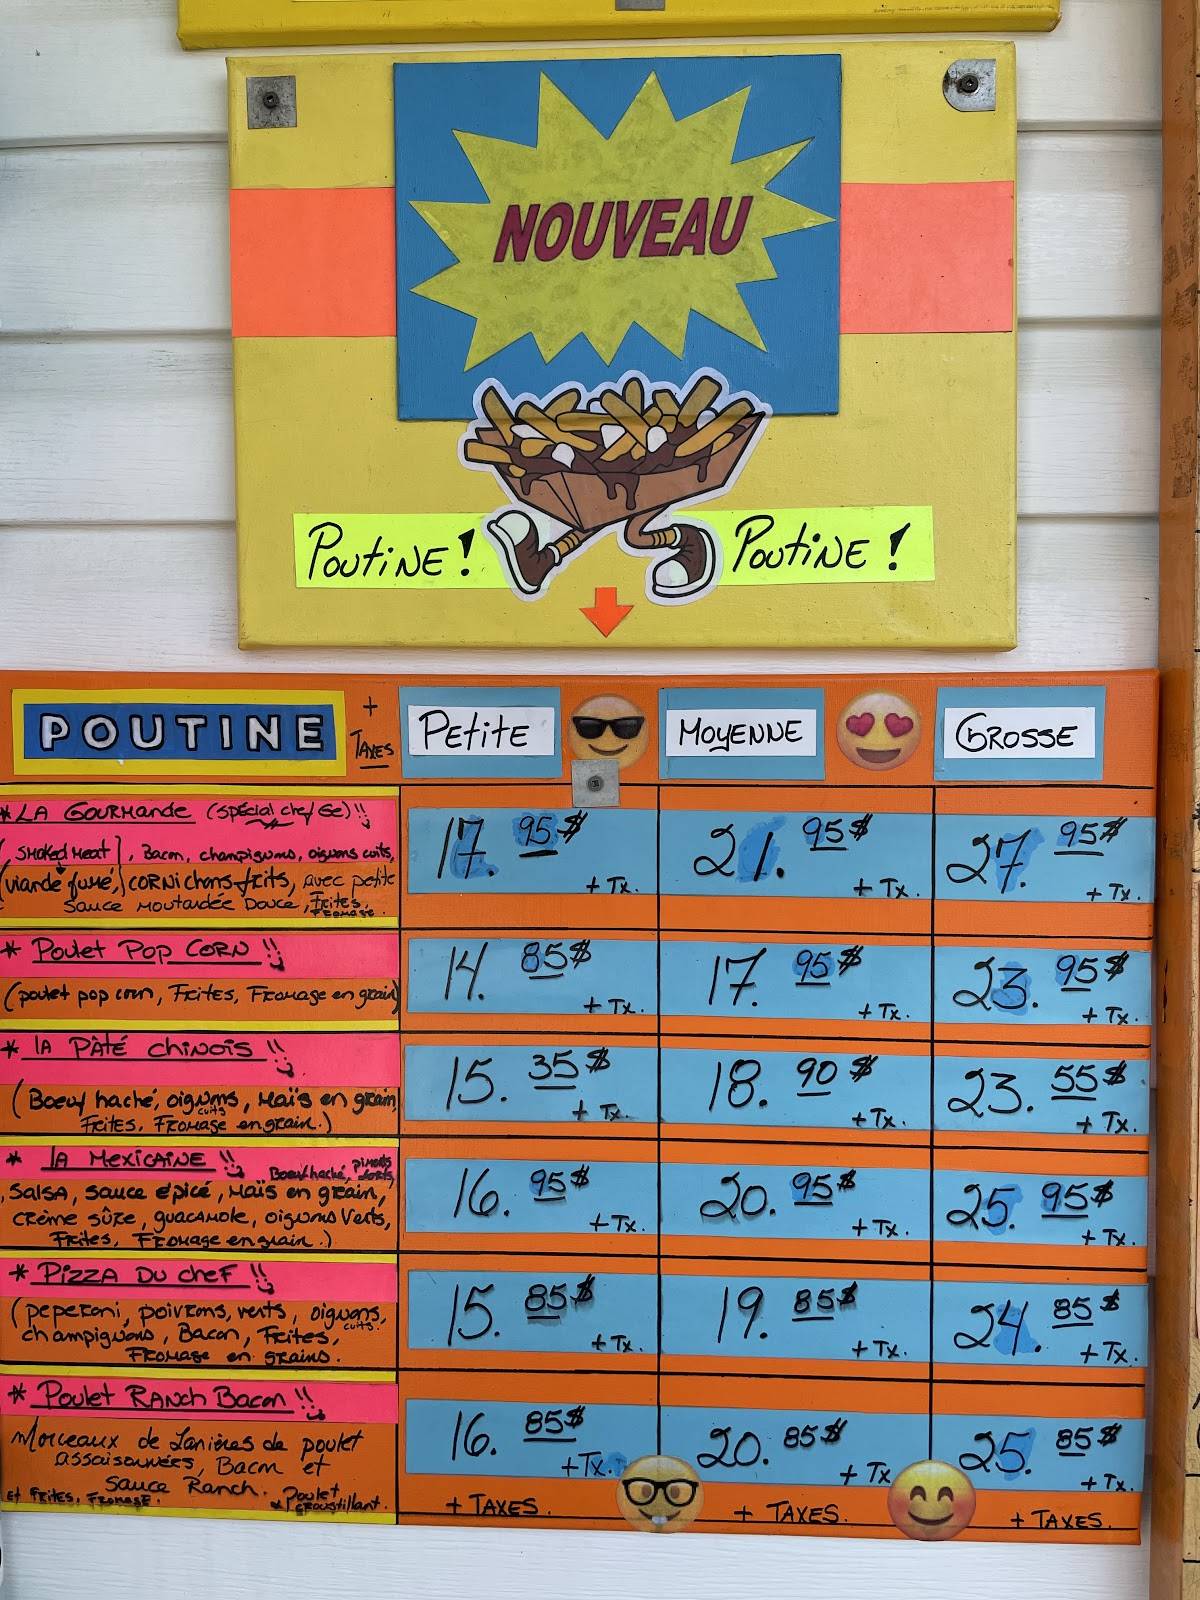 NOUVEAU
POUTINE! POUTINE!
POUTINE + TAXES PETITE MOYENNE GROSSE
* LA GOURMANDE (spécial chef Ge)!!
(SMOKED MEAT), Bacon, champignons, oignons cuits,
(viande fumé,) CORNichons frits, avec petite
sauce moutardée Douce, FRITES,
FROMAGE.
17. 95$ + Tx. 21. 95$ + Tx. 27. 95$ + Tx.
* POULET POP CORN!!
(poulet pop corn, FRITES, FROMAGE en grain)
14. 85$ + Tx. 17. 95$ + Tx. 23. 95$ + Tx.
* LA PÂTÉ CHINOIS!!
(Boeuf haché, oignons cuits, Maïs en grain,
FRITES, FROMAGE en grain.)
15. 35$ + Tx. 18. 90$ + Tx. 23. 55$ + Tx.
* LA MEXICAINE!! Boeuf haché, piments forts,
SALSA, sauce épicé, Maïs en grain,
CRÈME SÛRE, guacamole, oignons Verts,
FRITES, FROMAGE en grain.)
16. 95$ + Tx. 20. 95$ + Tx. 25. 95$ + Tx.
* PIZZA DU CHEF!!
(PEPERONi, poivrons, verts, oignons, cuits.
champignons, Bacon, FRITES,
FROMAGE en grains.
15. 85$ + Tx. 19. 85$ + Tx. 24. 85$ + Tx.
* POULET RANCH BACON!!
Morceaux de Lanières de poulet
assaisonnées, Bacon et
Sauce Ranch. Poulet
ET FRITES, FROMAGE. croustillant.
16. 85$ + Tx. 20. 85$ + Tx 25. 85$ + Tx.
+ TAXES. + TAXES. + TAXES.